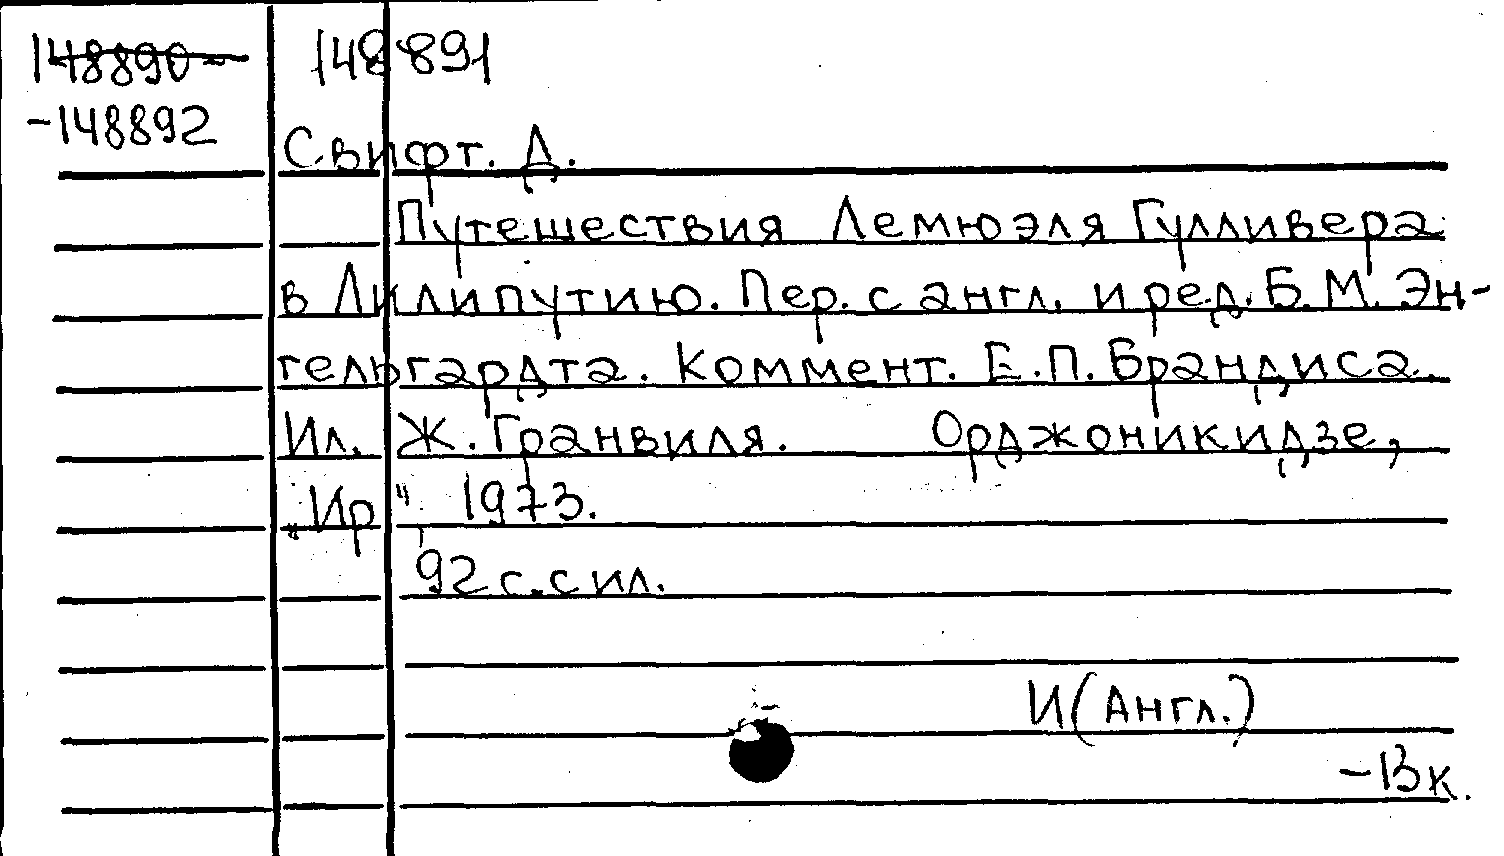 148890- 148891
-148892
Свифт. Д.
Путешествия Лемюэля Гулливера
в Лилипутию. Пер. с англ. и ред. Б. М. Эн-
гельгардта. Коммент. Е. П. Брандиса.
Ил. Ж. Гранвиля. Орджоникидзе,
„Ир", 1973.
92 с. с ил.
И (Англ.)
-13 к.